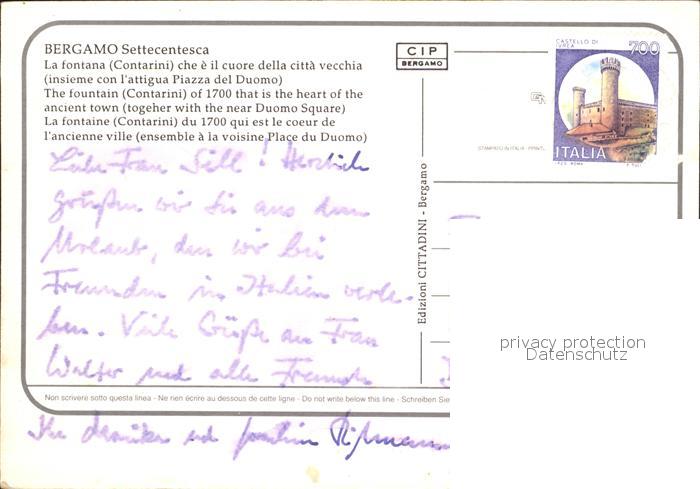 BERGAMO Settecentesca
La fontana (Contarini) che è il cuore della città vecchia
(insieme con l'attigua Piazza del Duomo)
The fountain (Contarini) of 1700 that is the heart of the
ancient town (togeher with the near Duomo Square)
La fontaine (Contarini) du 1700 qui est le coeur de
l'ancienne ville (ensemble à la voisine Place du Duomo)
Liebe Frau Sill! Herzlich
grüßen wir Sie aus dem
Urlaub, den wir bei
Freunden in Italien verle-
ben. Viele Grüße an Frau
Walter und alle Freunde
Non scrivere sotto questa linea - Ne rien écrire au dessous de cette ligne - Do not write below this line - Schreiben Sie
Ihre und Joachim
CIP
BERGAMO
Edizioni CITTADINI - Bergamo
CASTELLO DI
IVREA
700
ITALIA
STAMPATO IN ITALIA - PRINT
privacy protection
Datenschutz